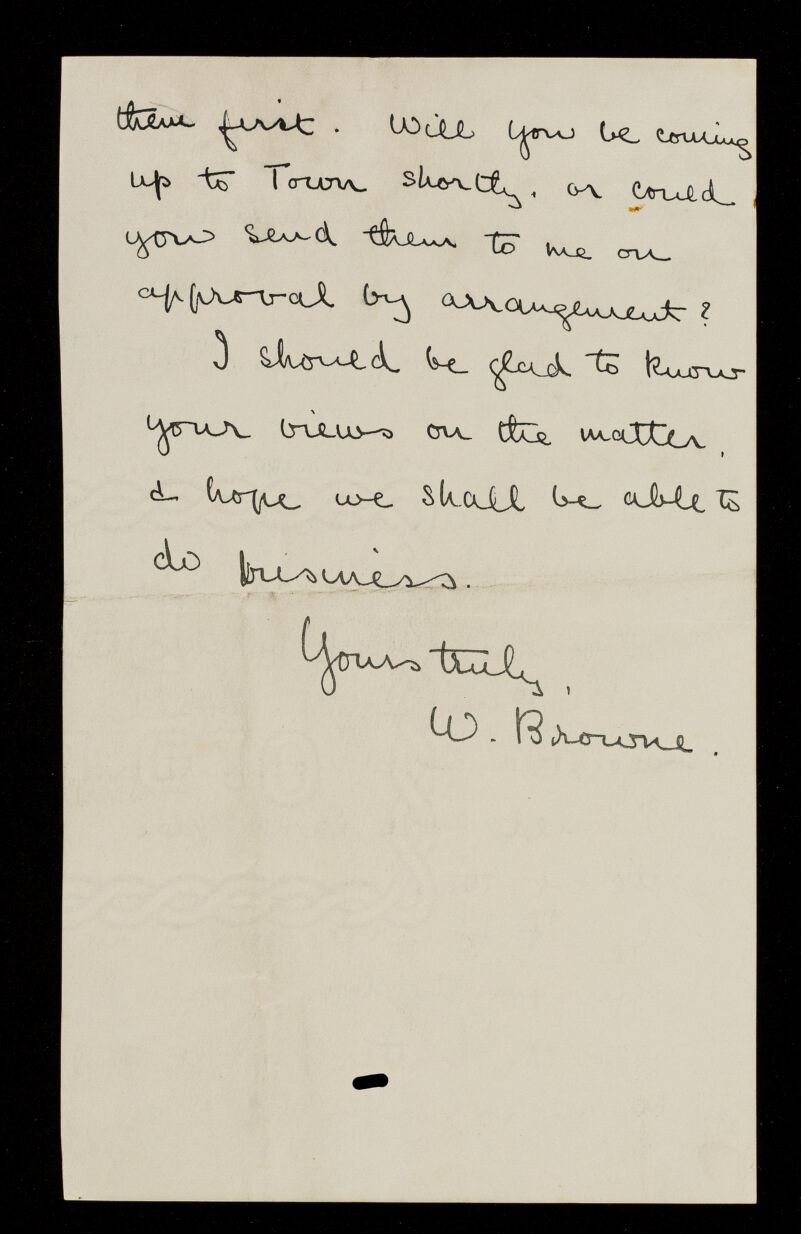 them first. Will you be coming
up to Town shortly, or could
you send them to me on
approval by arrangement?
I should be glad to know
your views on the matter,
& hope we shall be able to
do business.
Yours truly,
W. Browne.